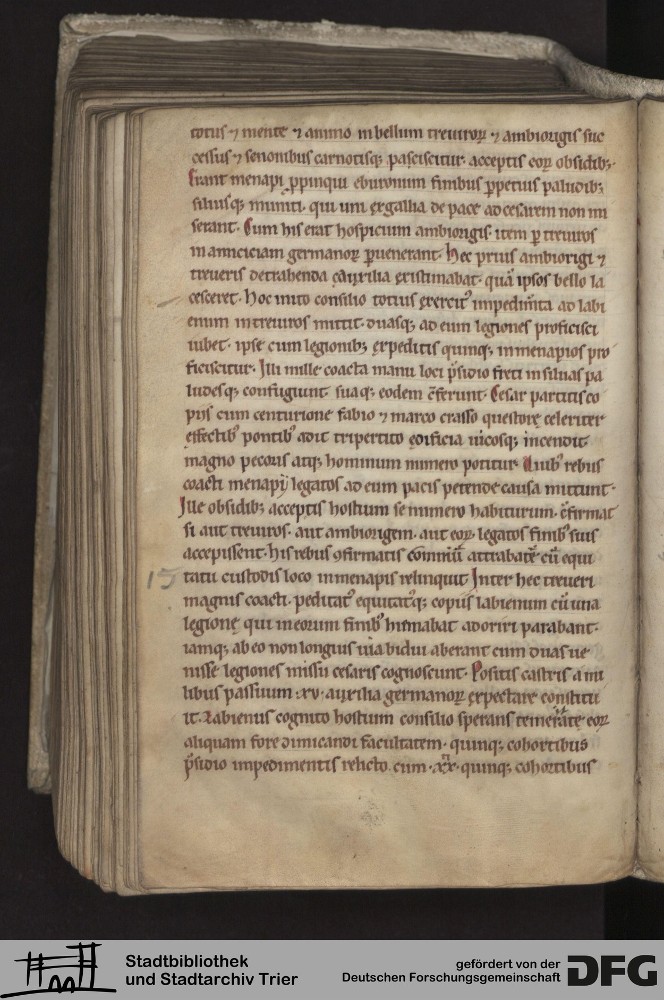 totus ⁊ mente ⁊ animo in bellum treuiroꝝ ⁊ ambiorigis suc
cessus ⁊ senonibus carnotisq; pasciscitur. acceptis eoꝝ obsidib;.
Erant menapi ꝓpinqui eburonum finibus ꝑpetuis paludib;
siluisq; muniti. qui uni ex gallia de pace ad cesarem non mi
serant. Cum his erat hospicium ambiorigis. item ꝑ treuiros
in amiciciam germanoꝝ ꝑuenerant. Hec prius ambiorigi ⁊
treueris detrahenda auxilia existimabat. quā ipsos bello la
cesceret. Hoc inito consilio totius exercit᷒ impedim̄ta ad labi
enum in treuiros mittit. duasq; ad eum legiones proficisci
iubet. ipse cum legionib; expeditis quinq; in menapios pro
ficiscitur. Illi nulle coacta manu loci p̄sidio freti in siluas pa
ludesq; confugiunt. suaq; eodem c̄ferunt. Cesar partitis co
piis cum centurione fabio ⁊ marco crasso questore celeriter
effectib᷒ pontib᷒ adit tripertito edificia uicosq; incendit.
magno pecoris atq; hominum numero potitur. Quib᷒ rebus
coacti menapij legatos ad eum pacis petende causa mittunt.
Ille obsidib; acceptis hostium se numero habiturum. c̄firmat
si aut treuiros. aut ambiorigem. aut eoꝝ. legatos finib᷒ suis
accepissent. His rebus ꝯfirmatis commiū attrabatē cū equi
tatu custodis loco in menapis relinquit. Inter hec treueri
magnis coacti. peditat᷒ equitat᷒q; copiis labienum cū una
legione qui in eorum finib᷒ hiemabat adoriri parabant.
iamq; ab eo non longius uia bidui aberant cum duas ue
nisse legiones missu cesaris cognoscunt. Positis castris a mi
libus passuum .xv. auxilia germanoꝝ expectare constitu
it. Labienus cognito hostium consilio sperans temeritate eoꝝ
aliquam fore dimicandi facultatem. quinq; cohortibus
p̄sidio impedimentis relicto. cum .xx. quinq; cohortibus
15
Stadtbibliothek
und Stadtarchiv Trier
gefördert von der
Deutschen Forschungsgemeinschaft
DFG